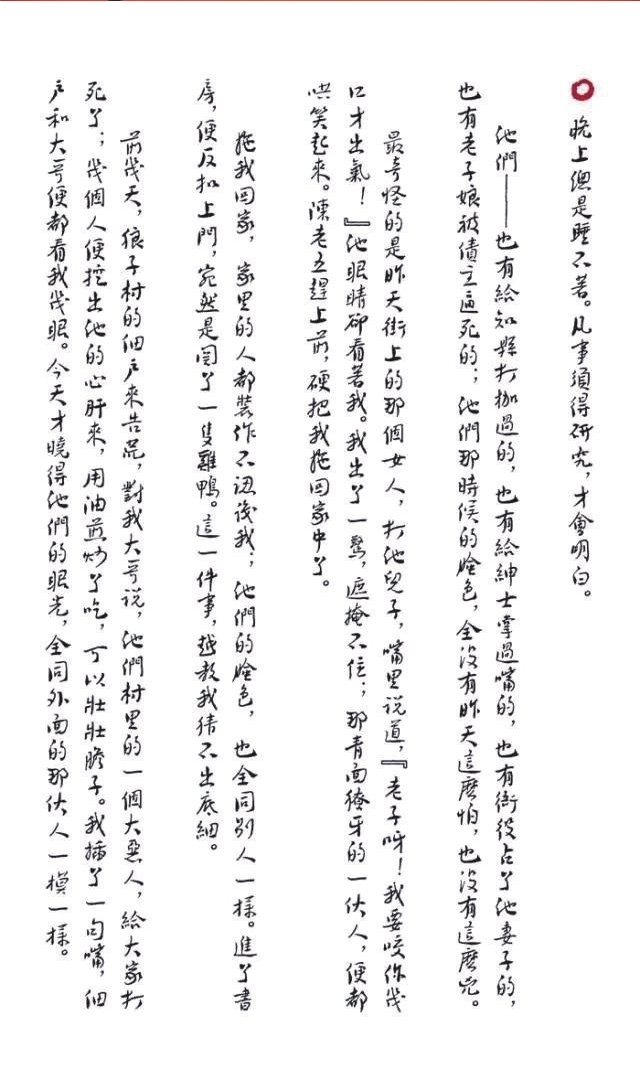 晚上總是睡不著。凡事須得研究，才會明白。
他們——也有給知縣打枷過的，也有給紳士掌過嘴的，也有衙役占了他妻子的，
也有老子娘被債主逼死的；他們那時候的臉色，全沒有昨天這麼怕，也沒有這麼兇。
最奇怪的是昨天街上的那個女人，打他兒子，嘴里説道，『老子呀！我要咬你幾
口才出氣！』他眼睛卻看著我。我出了一驚，遮掩不住；那青面獠牙的一伙人，便都
哄笑起來。陳老五趕上前，硬把我拖回家中了。
拖我回家，家里的人都裝作不認識我；他們的臉色，也全同別人一樣。進了書
房，便反扣上門，宛然是関了一隻雞鴨。這一件事，越教我猜不出底細。
前幾天，狼子村的佃戶來告荒，對我大哥説，他們村里的一個大惡人，給大家打
死了；幾個人便挖出他的心肝來，用油煎炒了吃，可以壯壯膽子。我插了一句嘴，佃
戶和大哥便都看我幾眼。今天才曉得他們的眼光，全同外面的那伙人一模一樣。